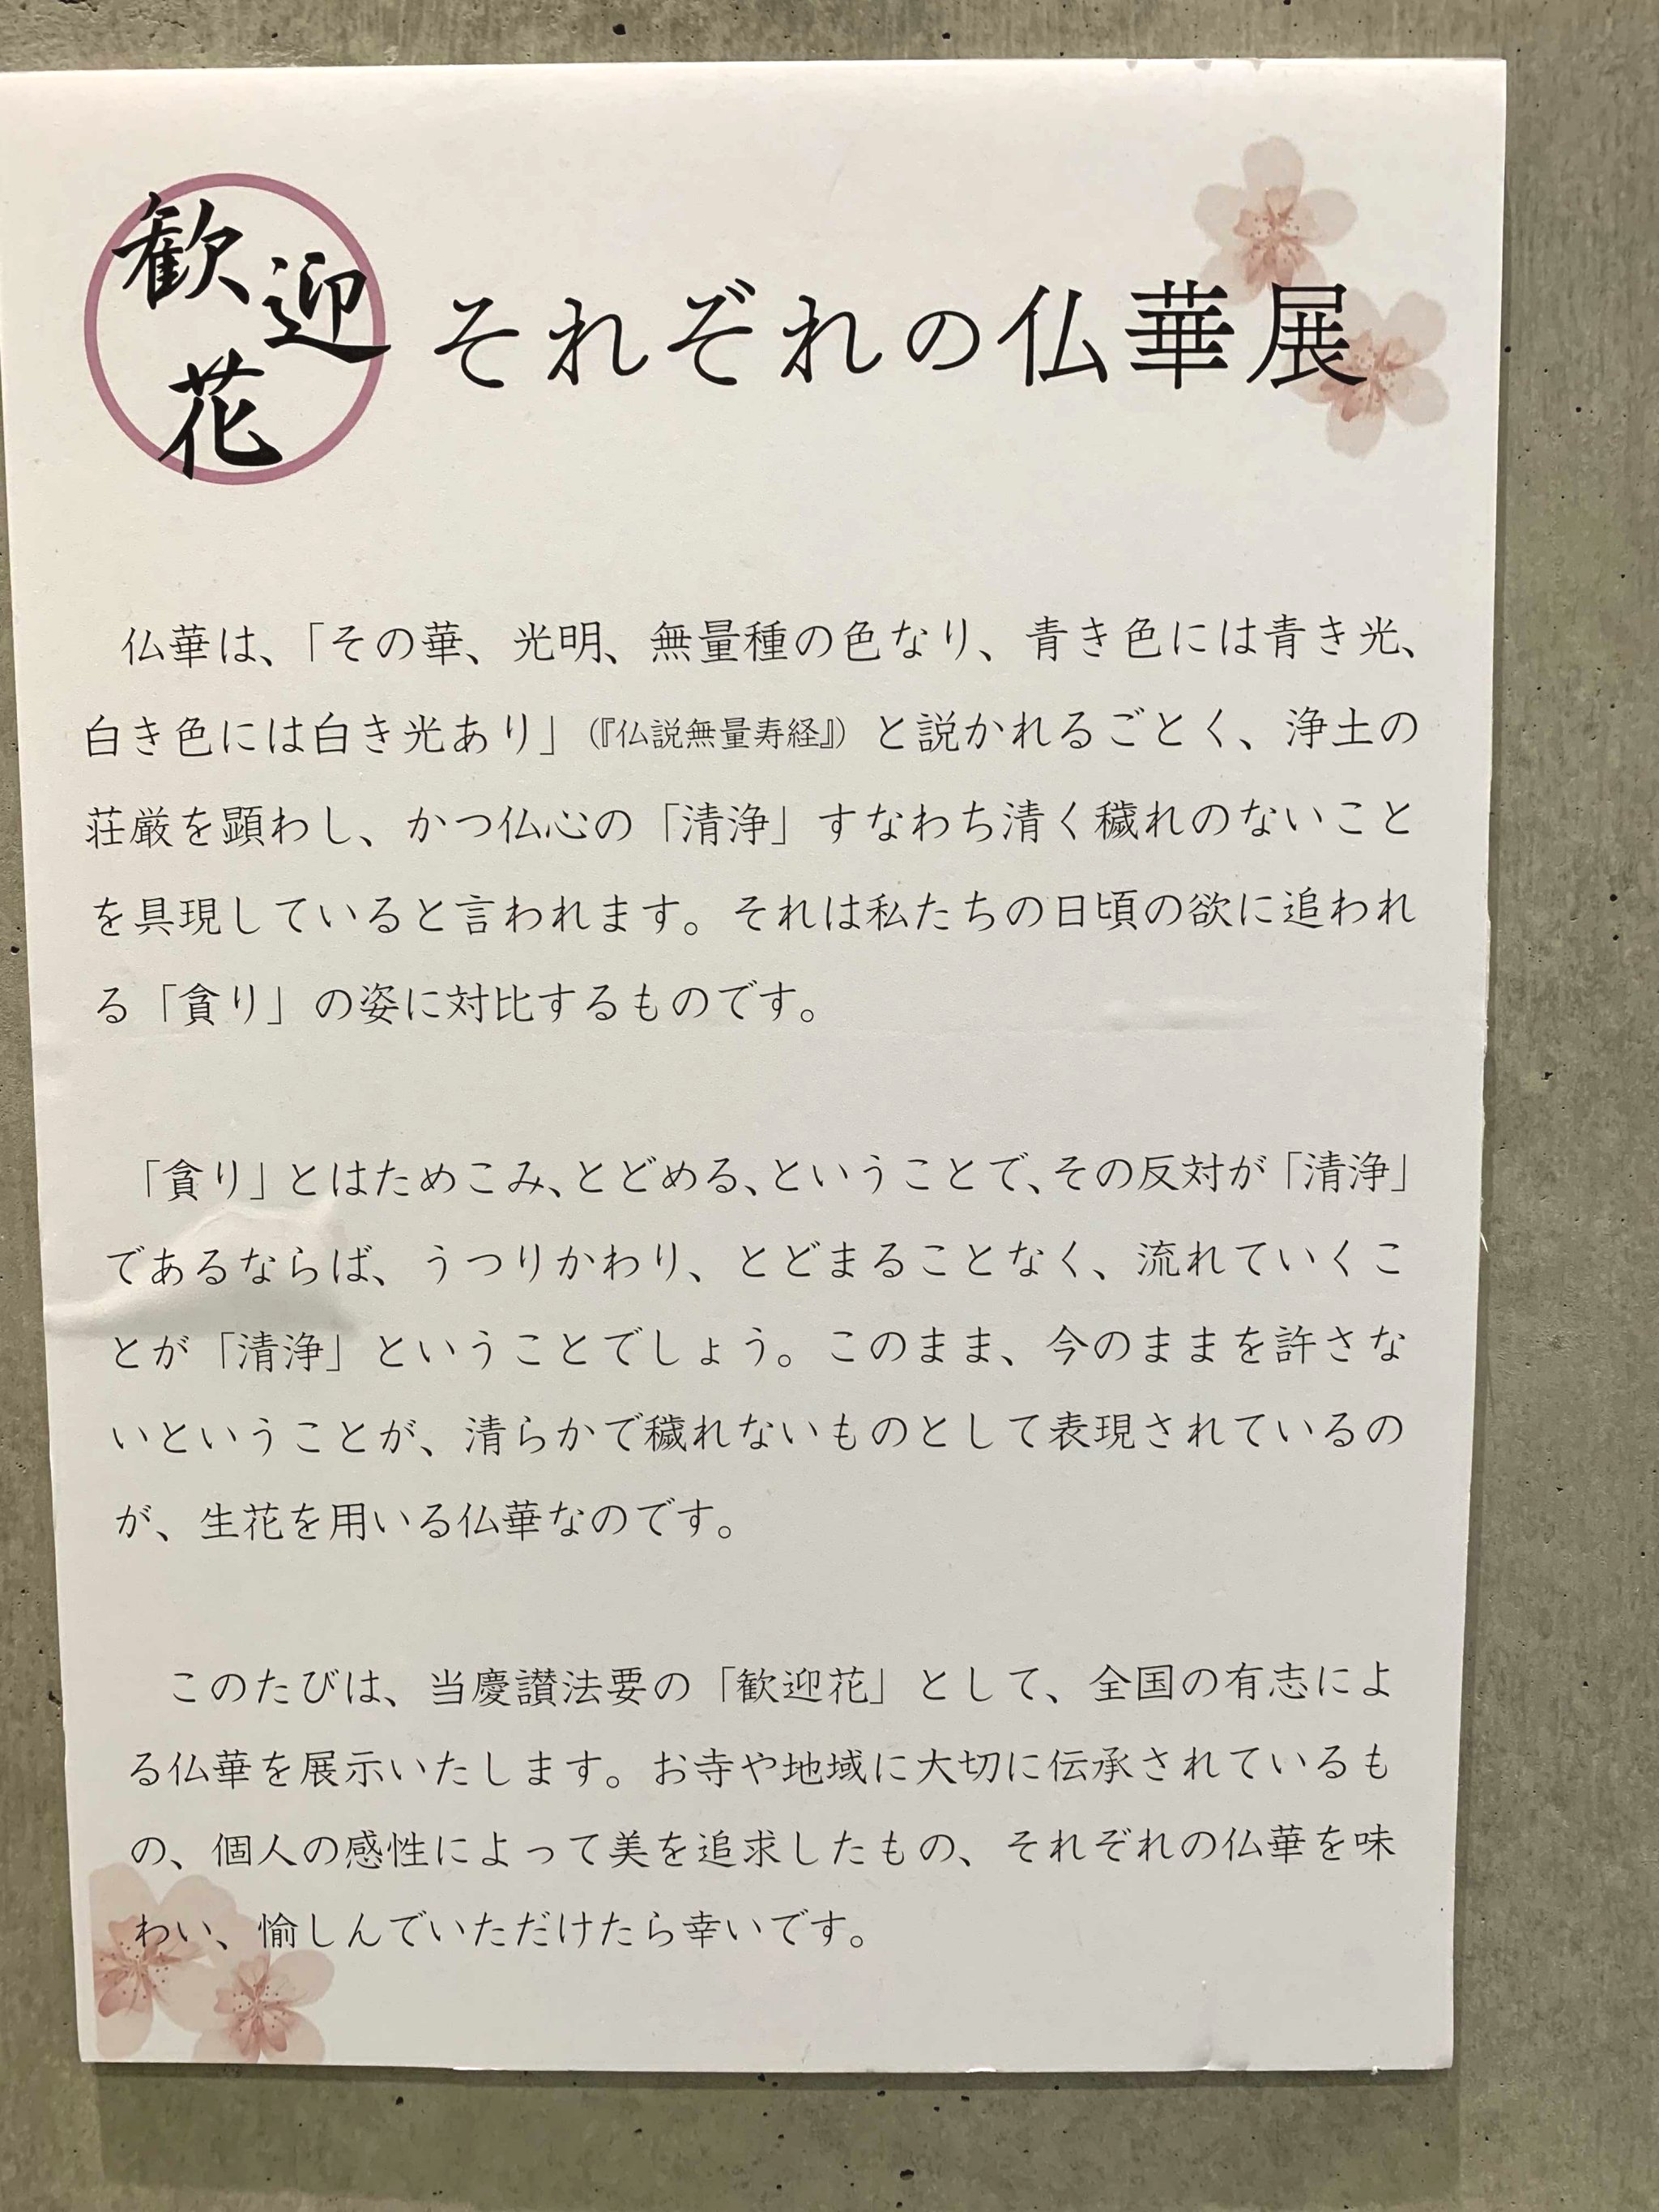 歓迎花
それぞれの仏華展
仏華は、「その華、光明、無量種の色なり、青き色には青き光、
白き色には白き光あり」（『仏説無量寿経』）と説かれるごとく、浄土の
荘厳を顕わし、かつ仏心の「清浄」すなわち清く穢れのないこと
を具現していると言われます。それは私たちの日頃の欲に追われ
る「貪り」の姿に対比するものです。
「貪り」とはためこみ、とどめる、ということで、その反対が「清浄」
であるならば、うつりかわり、とどまることなく、流れていくこ
とが「清浄」ということでしょう。このまま、今のままを許さな
いということが、清らかで穢れないものとして表現されているの
が、生花を用いる仏華なのです。
このたびは、当慶讃法要の「歓迎花」として、全国の有志によ
る仏華を展示いたします。お寺や地域に大切に伝承されているも
の、個人の感性によって美を追求したもの、それぞれの仏華を味
わい、愉しんでいただけたら幸いです。